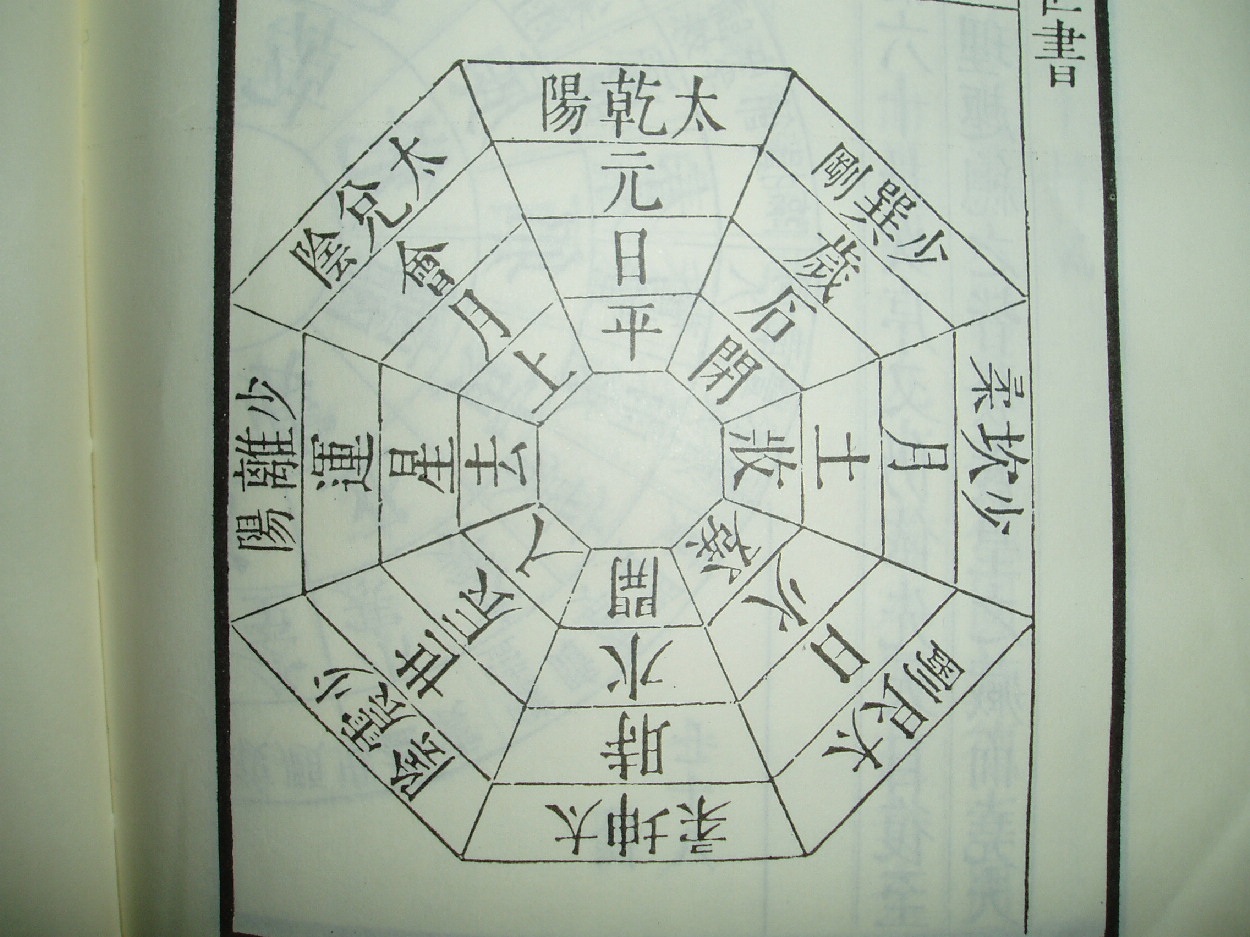 書
太乾陽
元
日
平
太兌陰
會
月
上
少離陽
運
星
去
少震陰
世
辰
入
少巽剛
歲
石
閉
少坎柔
月
土
收
太艮剛
日
火
發
太坤柔
時
水
開